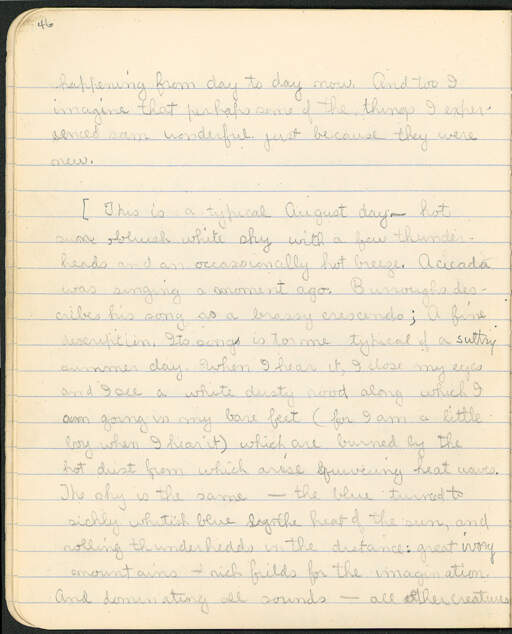 46
happening from day to day now. And too I
imagine that perhaps some of the things I exper-
iences seem wonderful just because they were
new.
[ This is a typical August day— hot
sun, bluish white sky with a few thunder-
heads and an occassionally hot breeze. A cicada
was singing a moment ago. Burroughs des-
cribes his song as a brassy crescendo; A fine
description. Its song is to me typical of a sultry
summer day. When I hear it, I close my eyes
and I see a white dusty road along which I
am going in my bare feet (for I am a little
boy when I hear it) which are burned by the
hot dust from which arise quivering heat waves.
The sky is the same — the blue turned to
sickly whitish blue by the heat of the sun, and
rolling thunderhedds in the distance: great ivory
mountains + rich fields for the imagination.
And dominating all sounds — all other creatures